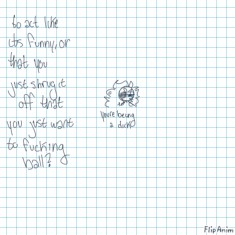 to act like
its funny, or
that you
just shrug it
off that
you just want
to fucking
ball?
you're being
a dick
FlipAnim